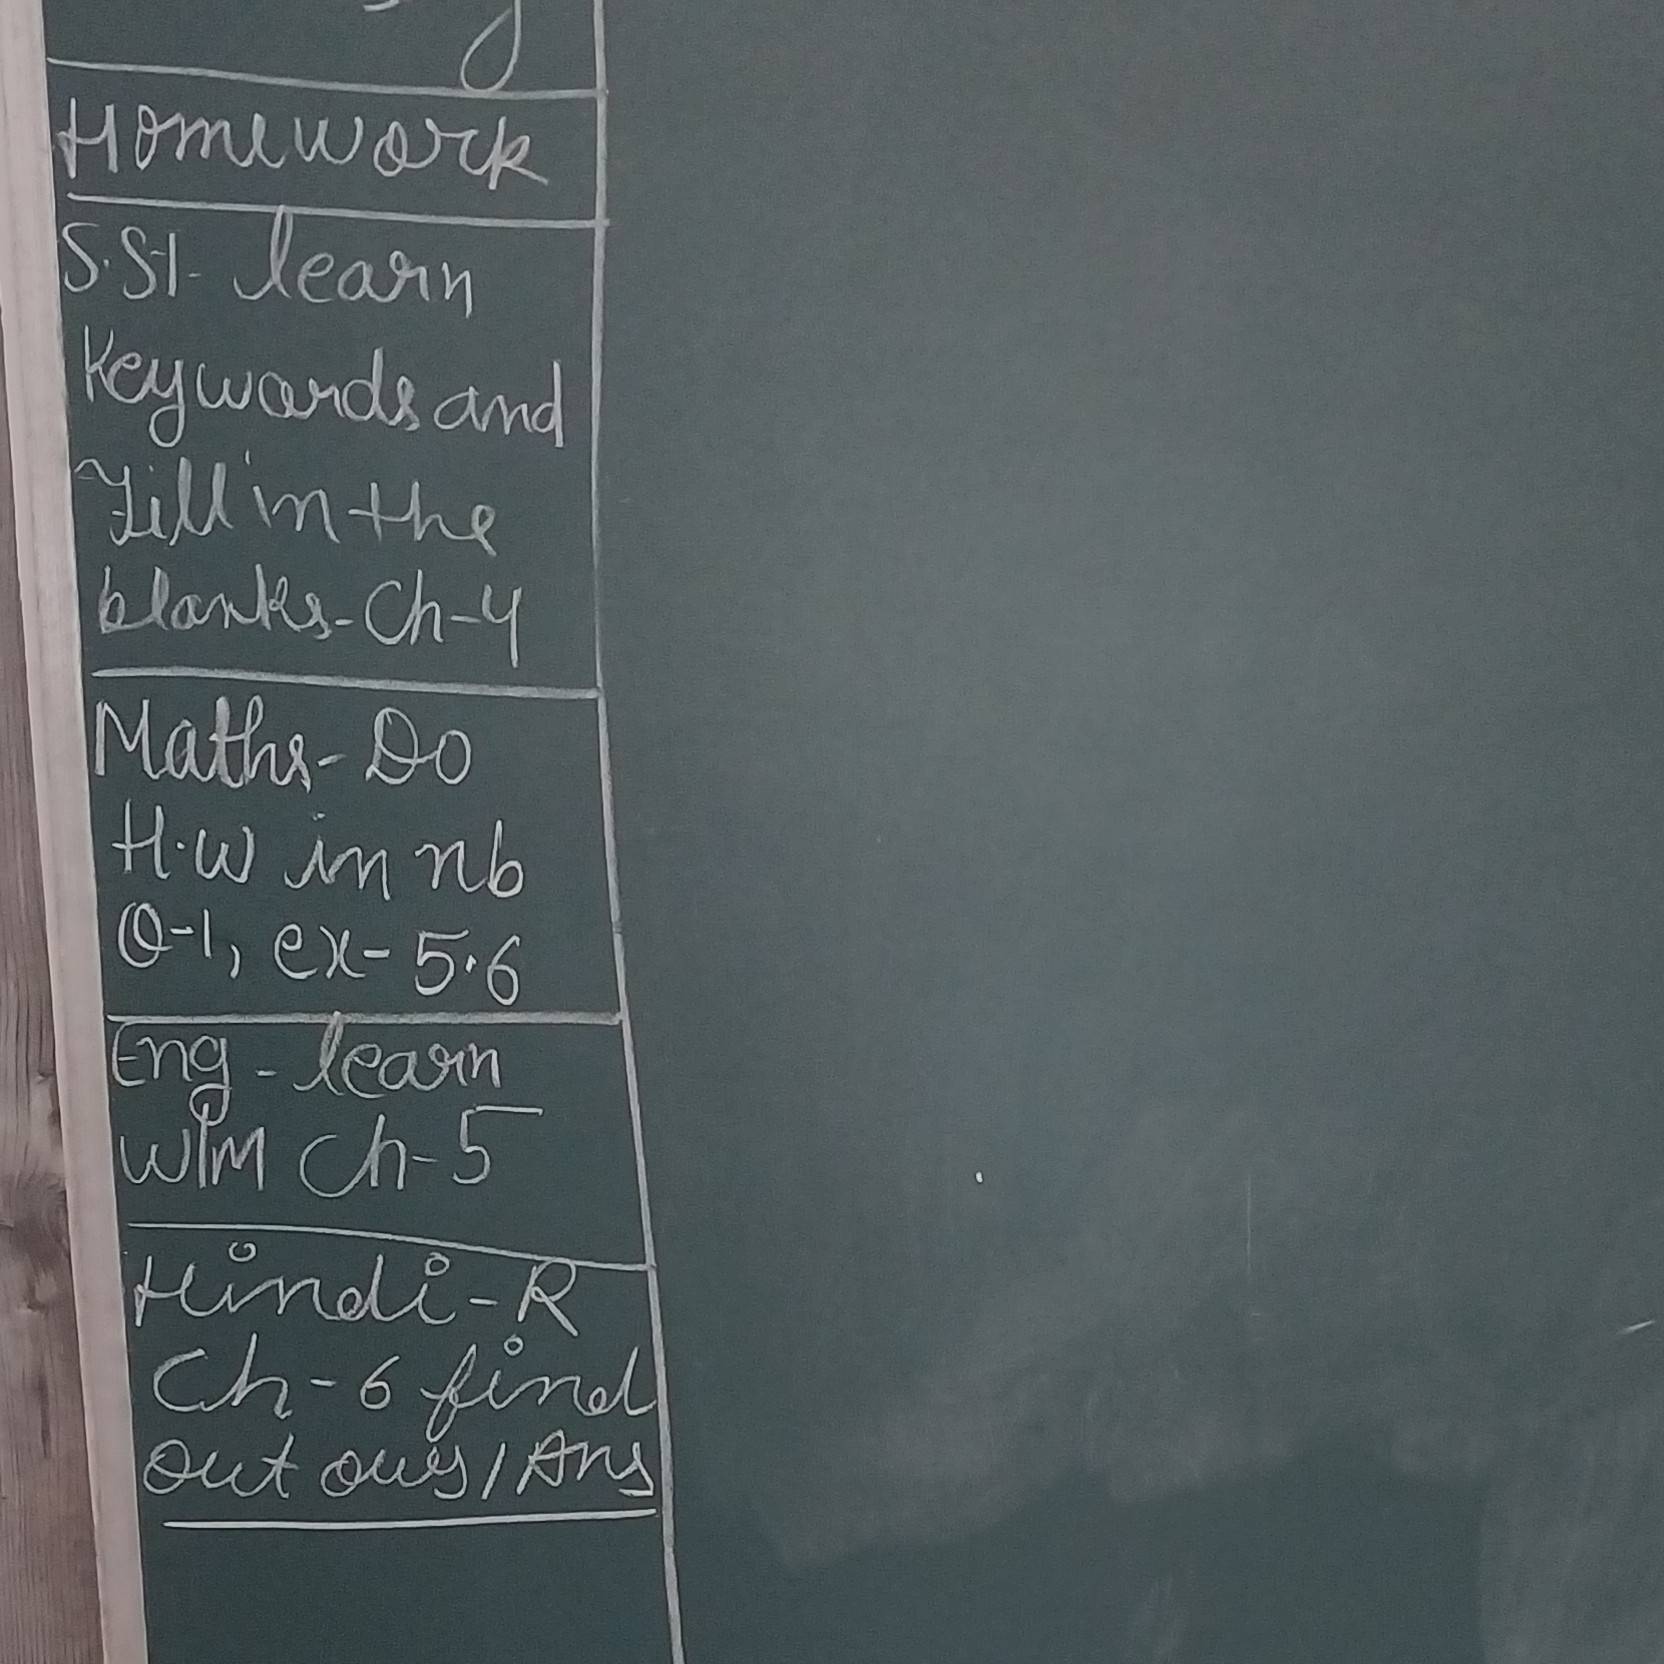 Homework
S.St- learn
Keywords and
Fill in the
blanks-Ch-4
Maths- Do
H.W in nb
Q-1, ex- 5.6
Eng - learn
W/M Ch-5
Hindi-R
Ch-6 find
out / Ans